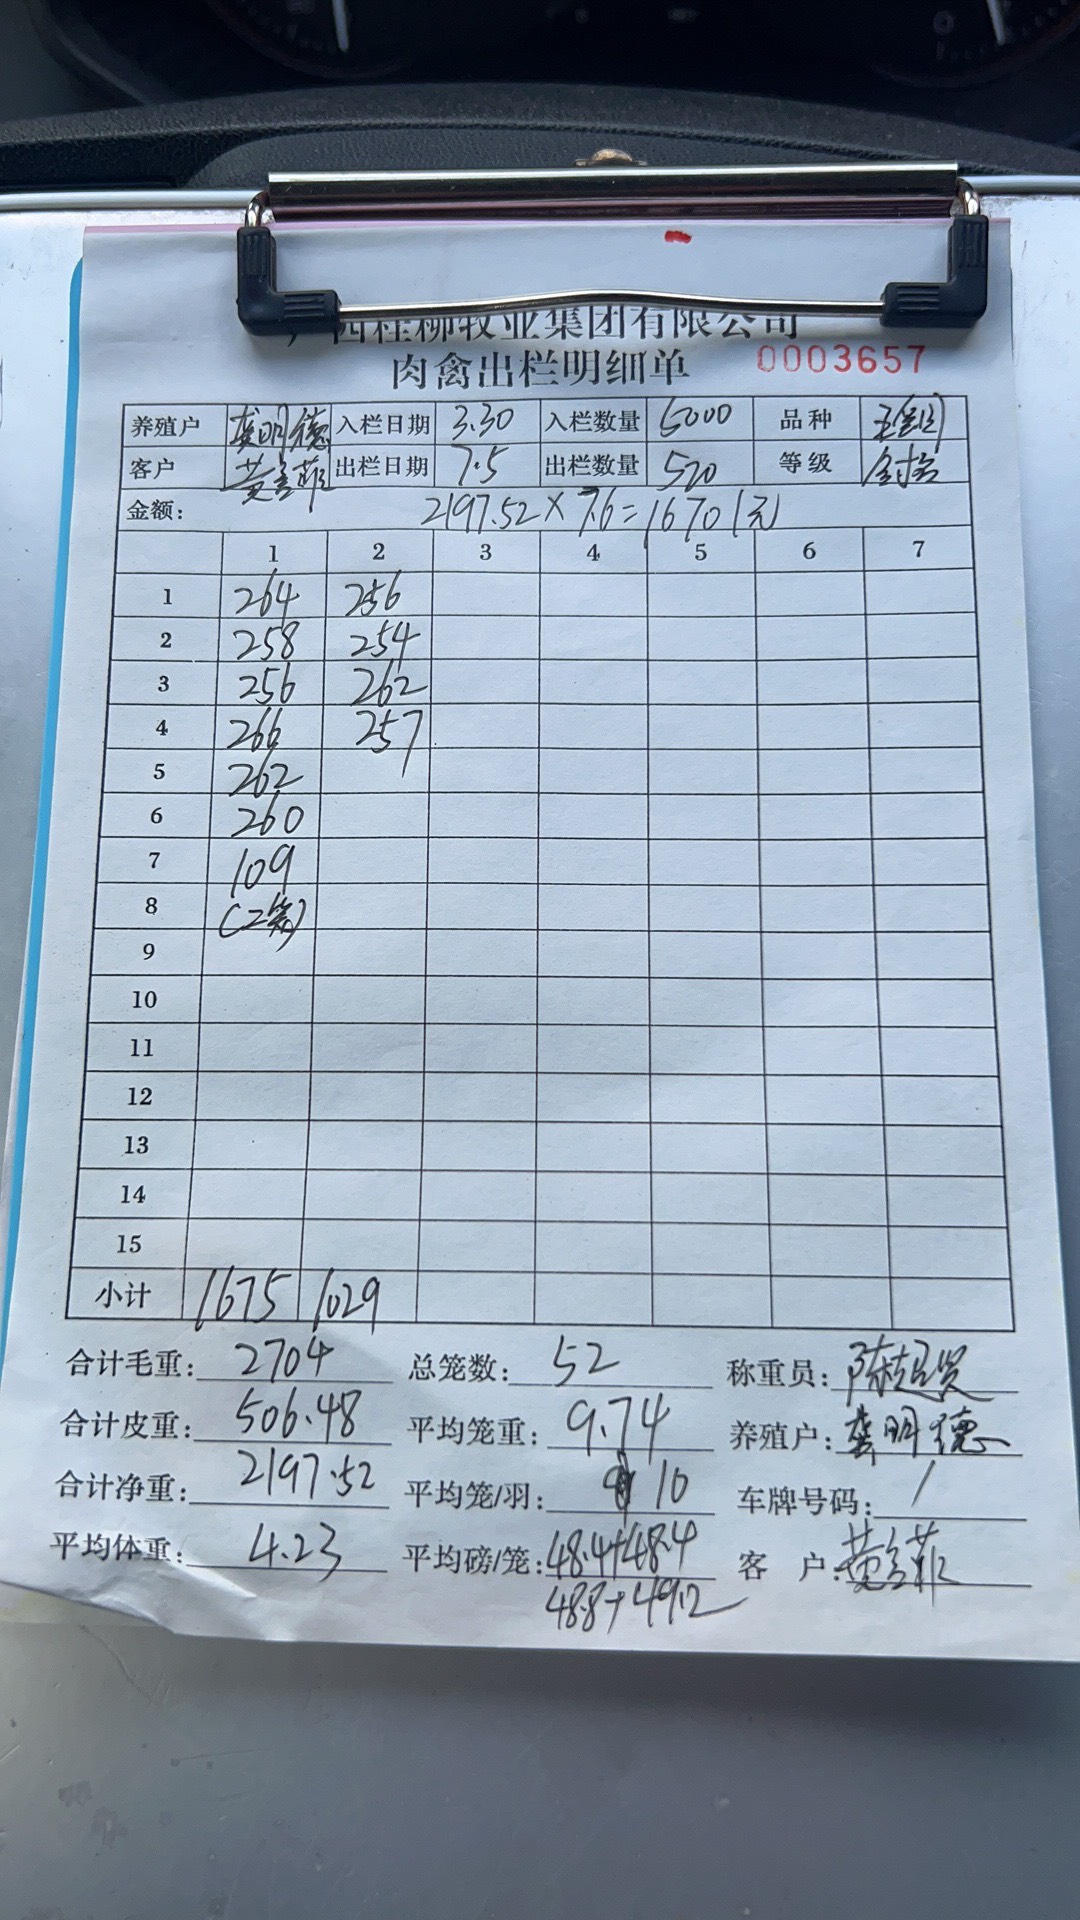 广西桂柳牧业集团有限公司
肉禽出栏明细单 0003657
养殖户 龚明德 入栏日期 3.30 入栏数量 5000 品种
客户 黄金菲 出栏日期 7.5 出栏数量 520 等级
金额: 2197.52×7.6=16701元
1 2 3 4 5 6 7
1 264 256
2 258 254
3 256 262
4 266 257
5 262
6 260
7 109
8 (2笼)
9
10
11
12
13
14
15
小计 1675 1029
合计毛重: 2704 总笼数: 52 称重员:
合计皮重: 506.48 平均笼重: 9.74 养殖户: 龚明德
合计净重: 2197.52 平均笼/羽: 10 车牌号码: /
平均体重: 4.23 平均磅/笼: 48.4+48.4 客 户: 黄金菲
48.8+49.2